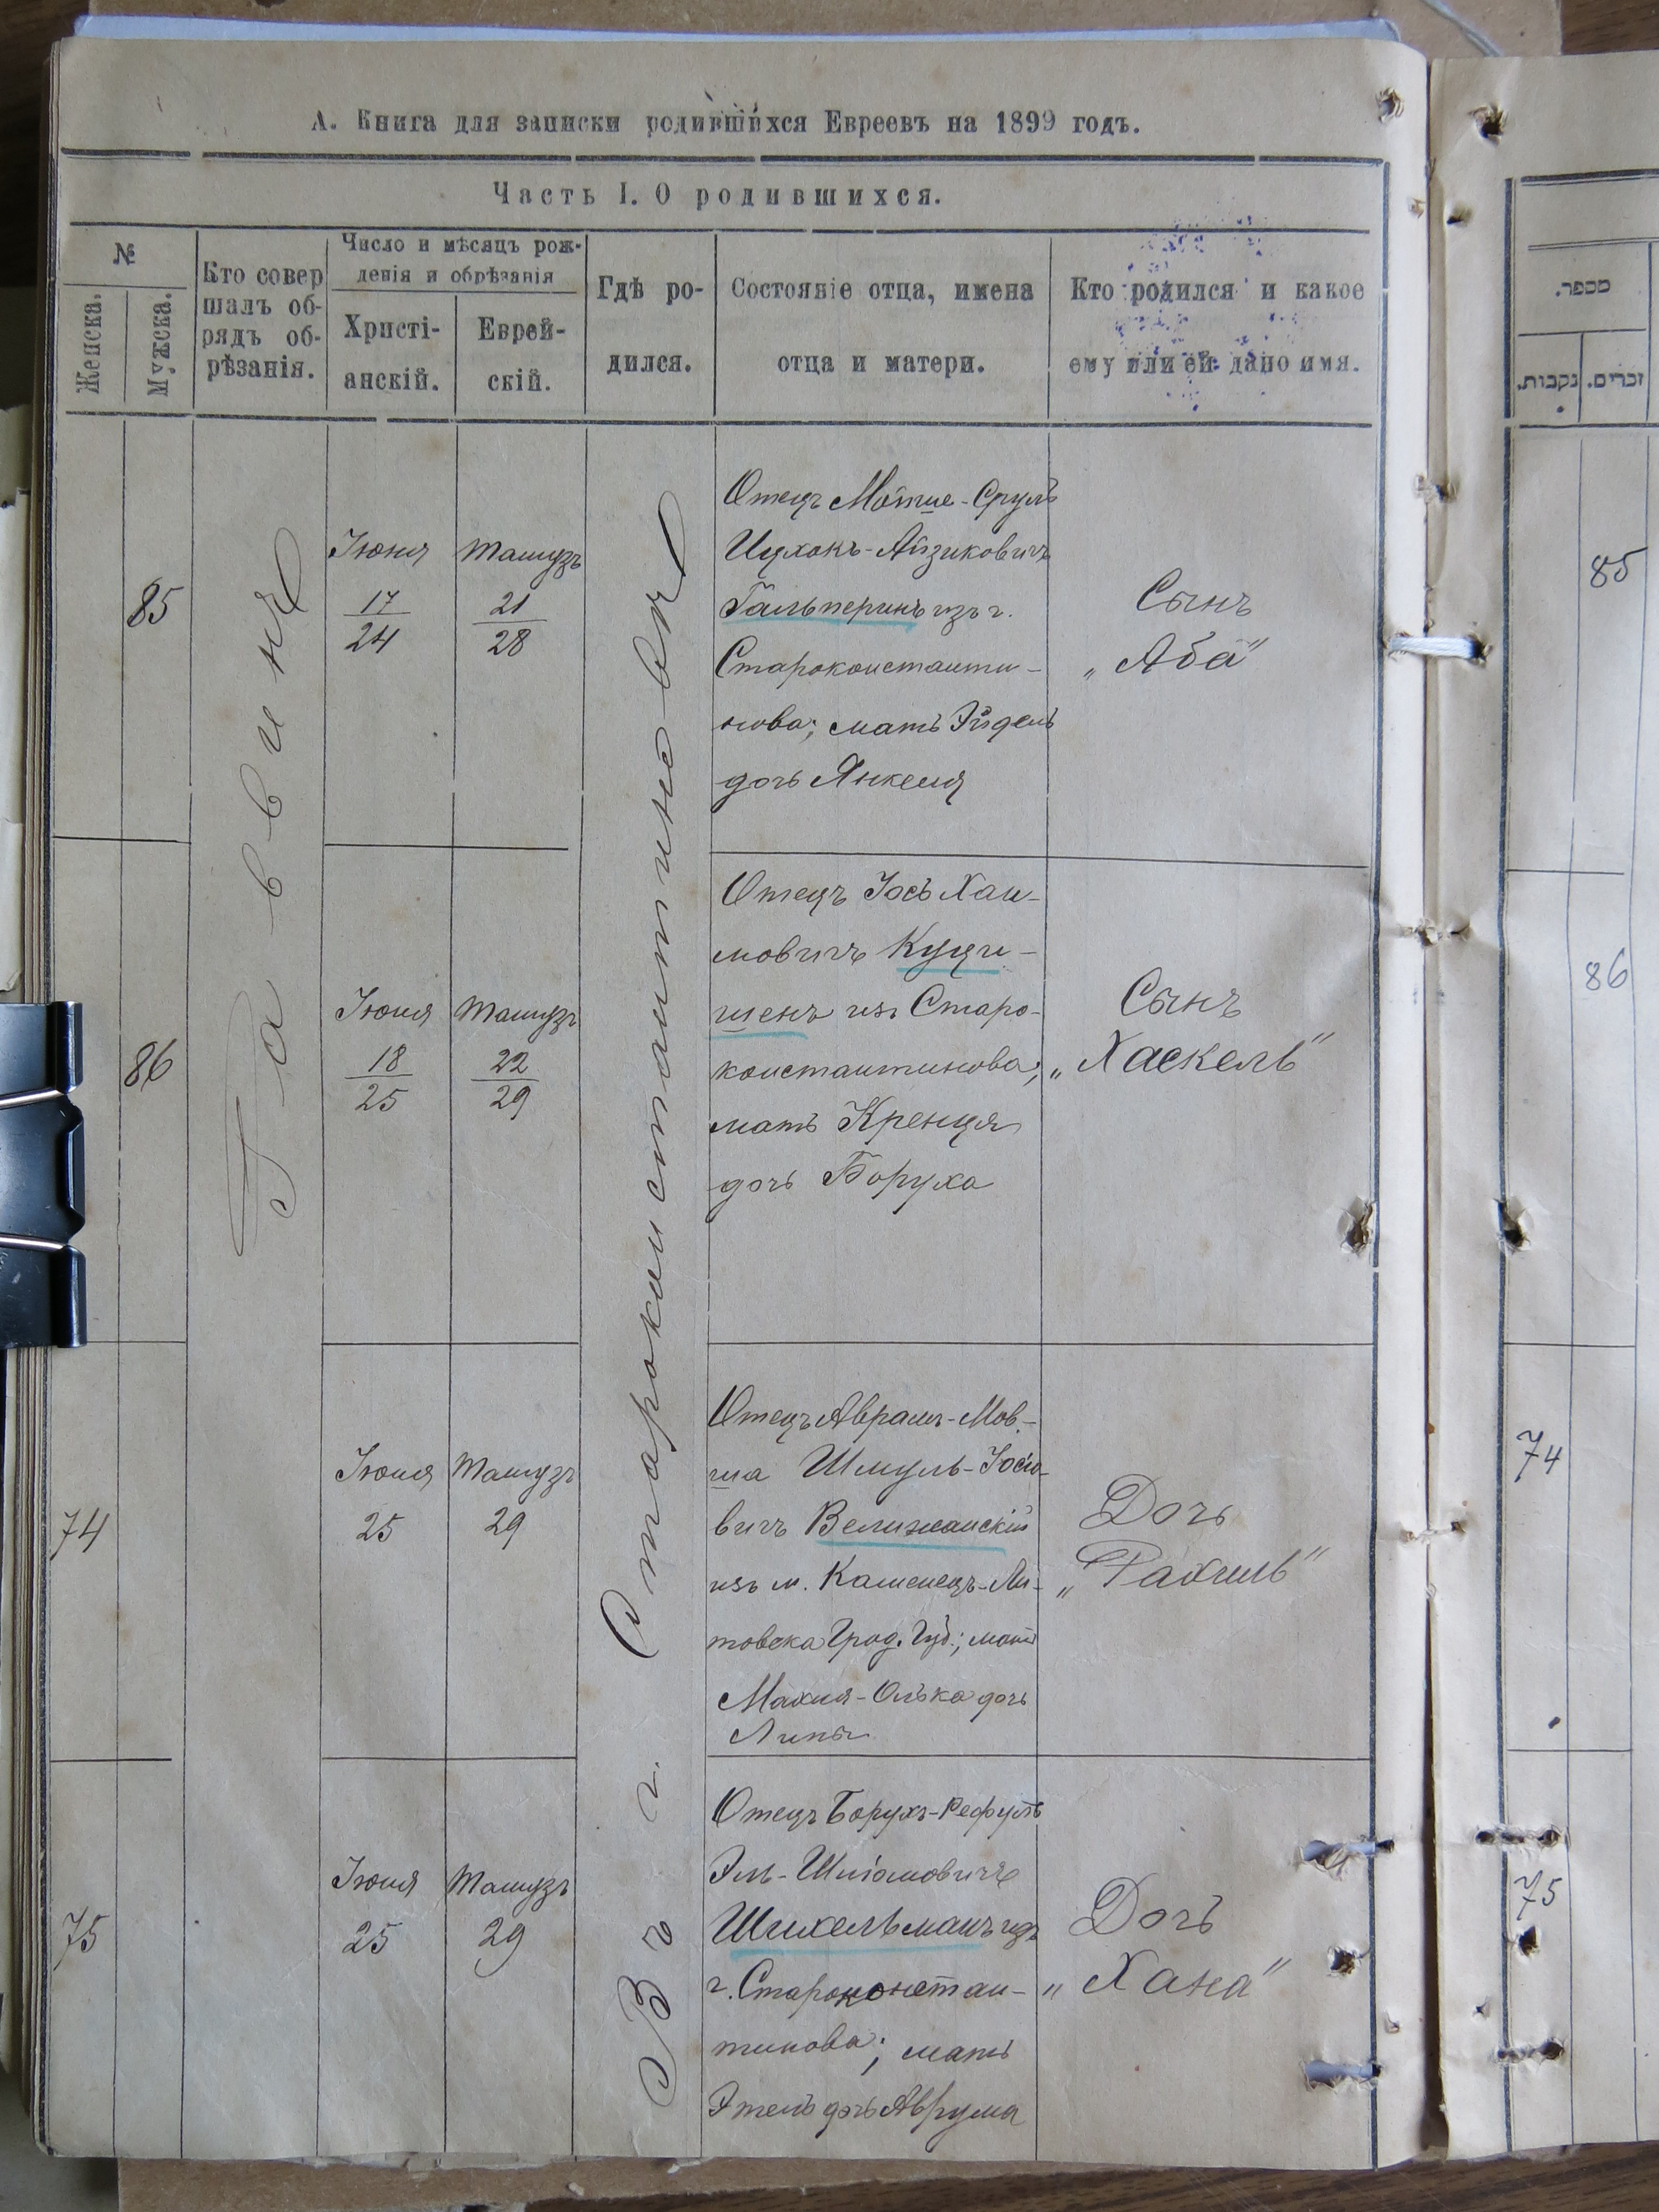 А. Книга для записки родившихся Евреевъ на 1899 годъ.
Часть I. О родившихся.
№
Женска.
Мужска.
Кто совер
шалъ об-
рядъ об-
рѣзанія.
Число и мѣсяцъ рож-
денія и обрѣзанія
Христі-
анскій.
Еврей-
скій.
Гдѣ ро-
дился.
Состояніе отца, имена
отца и матери.
Кто родился и какое
ему или ей дано имя.
Раввинъ
Въ г. Староконстантиновѣ
85
Іюня
17
24
Тамузъ
21
28
Отецъ Мотше-Сруль
Ицхокъ-Айзиковичъ
Гальперинъ изъ г.
Староконстанти-
нова; мать Эйдель
дочь Янкеля
Сынъ
„Аба"
86
Іюня
18
25
Тамузъ
22
29
Отецъ Іось Хаи-
мовичъ Куци-
шенъ изъ Старо-
константинова;
мать Кренця
дочь Боруха
Сынъ
„Хаскель"
74
Іюня
25
Тамузъ
29
Отецъ Аврамъ-Мов-
ша Шмуль-Іосіо-
вичъ Велижанскій
изъ м. Каменецъ-Ли-
товска Грод. Губ.; мать
Махля-Олька дочь
Липы
Дочь
„Рахиль"
75
Іюня
25
Тамузъ
29
Отецъ Борухъ-Рефуль
Эль-Шліомовичъ
Шихельманъ изъ
г. Староконстан-
тинова; мать
Этель дочь Аврума
Дочь
„Хана"
מספר.
זכרים.
נקבות.
85
86
74
75